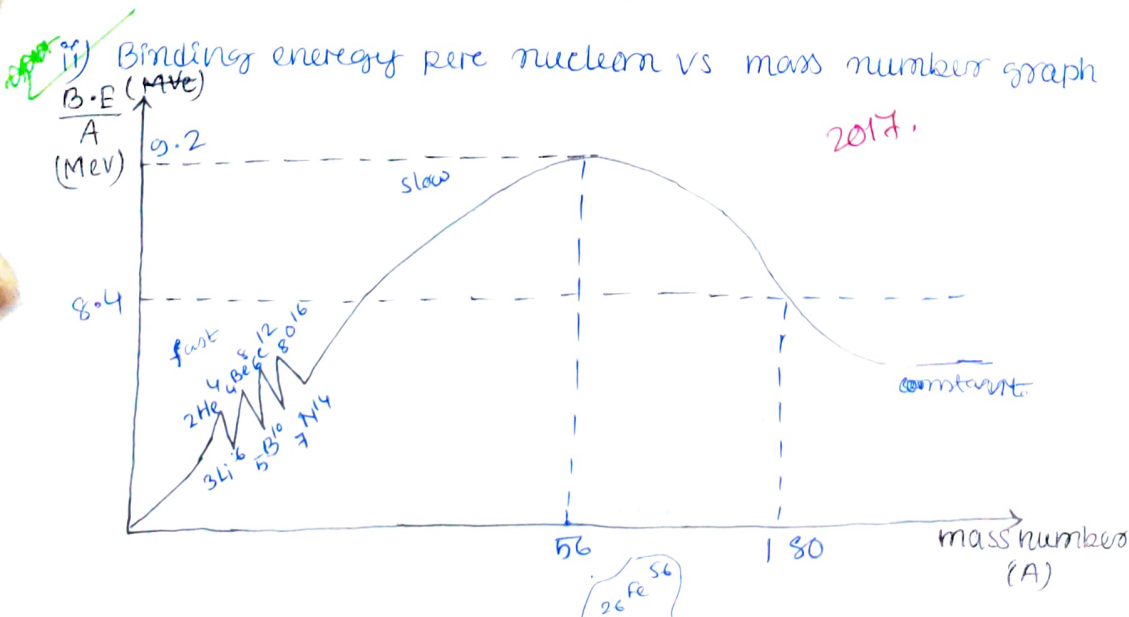 ii) Binding eneregy pere nucleon vs mass number graph
B.E (MVe)
A
(Mev)
2017.
9.2
slow
8.4
fast
2He4
4Be8
6C12
8O16
3Li6
5B10
7N14
constant.
56
180
mass number
(A)
26Fe56